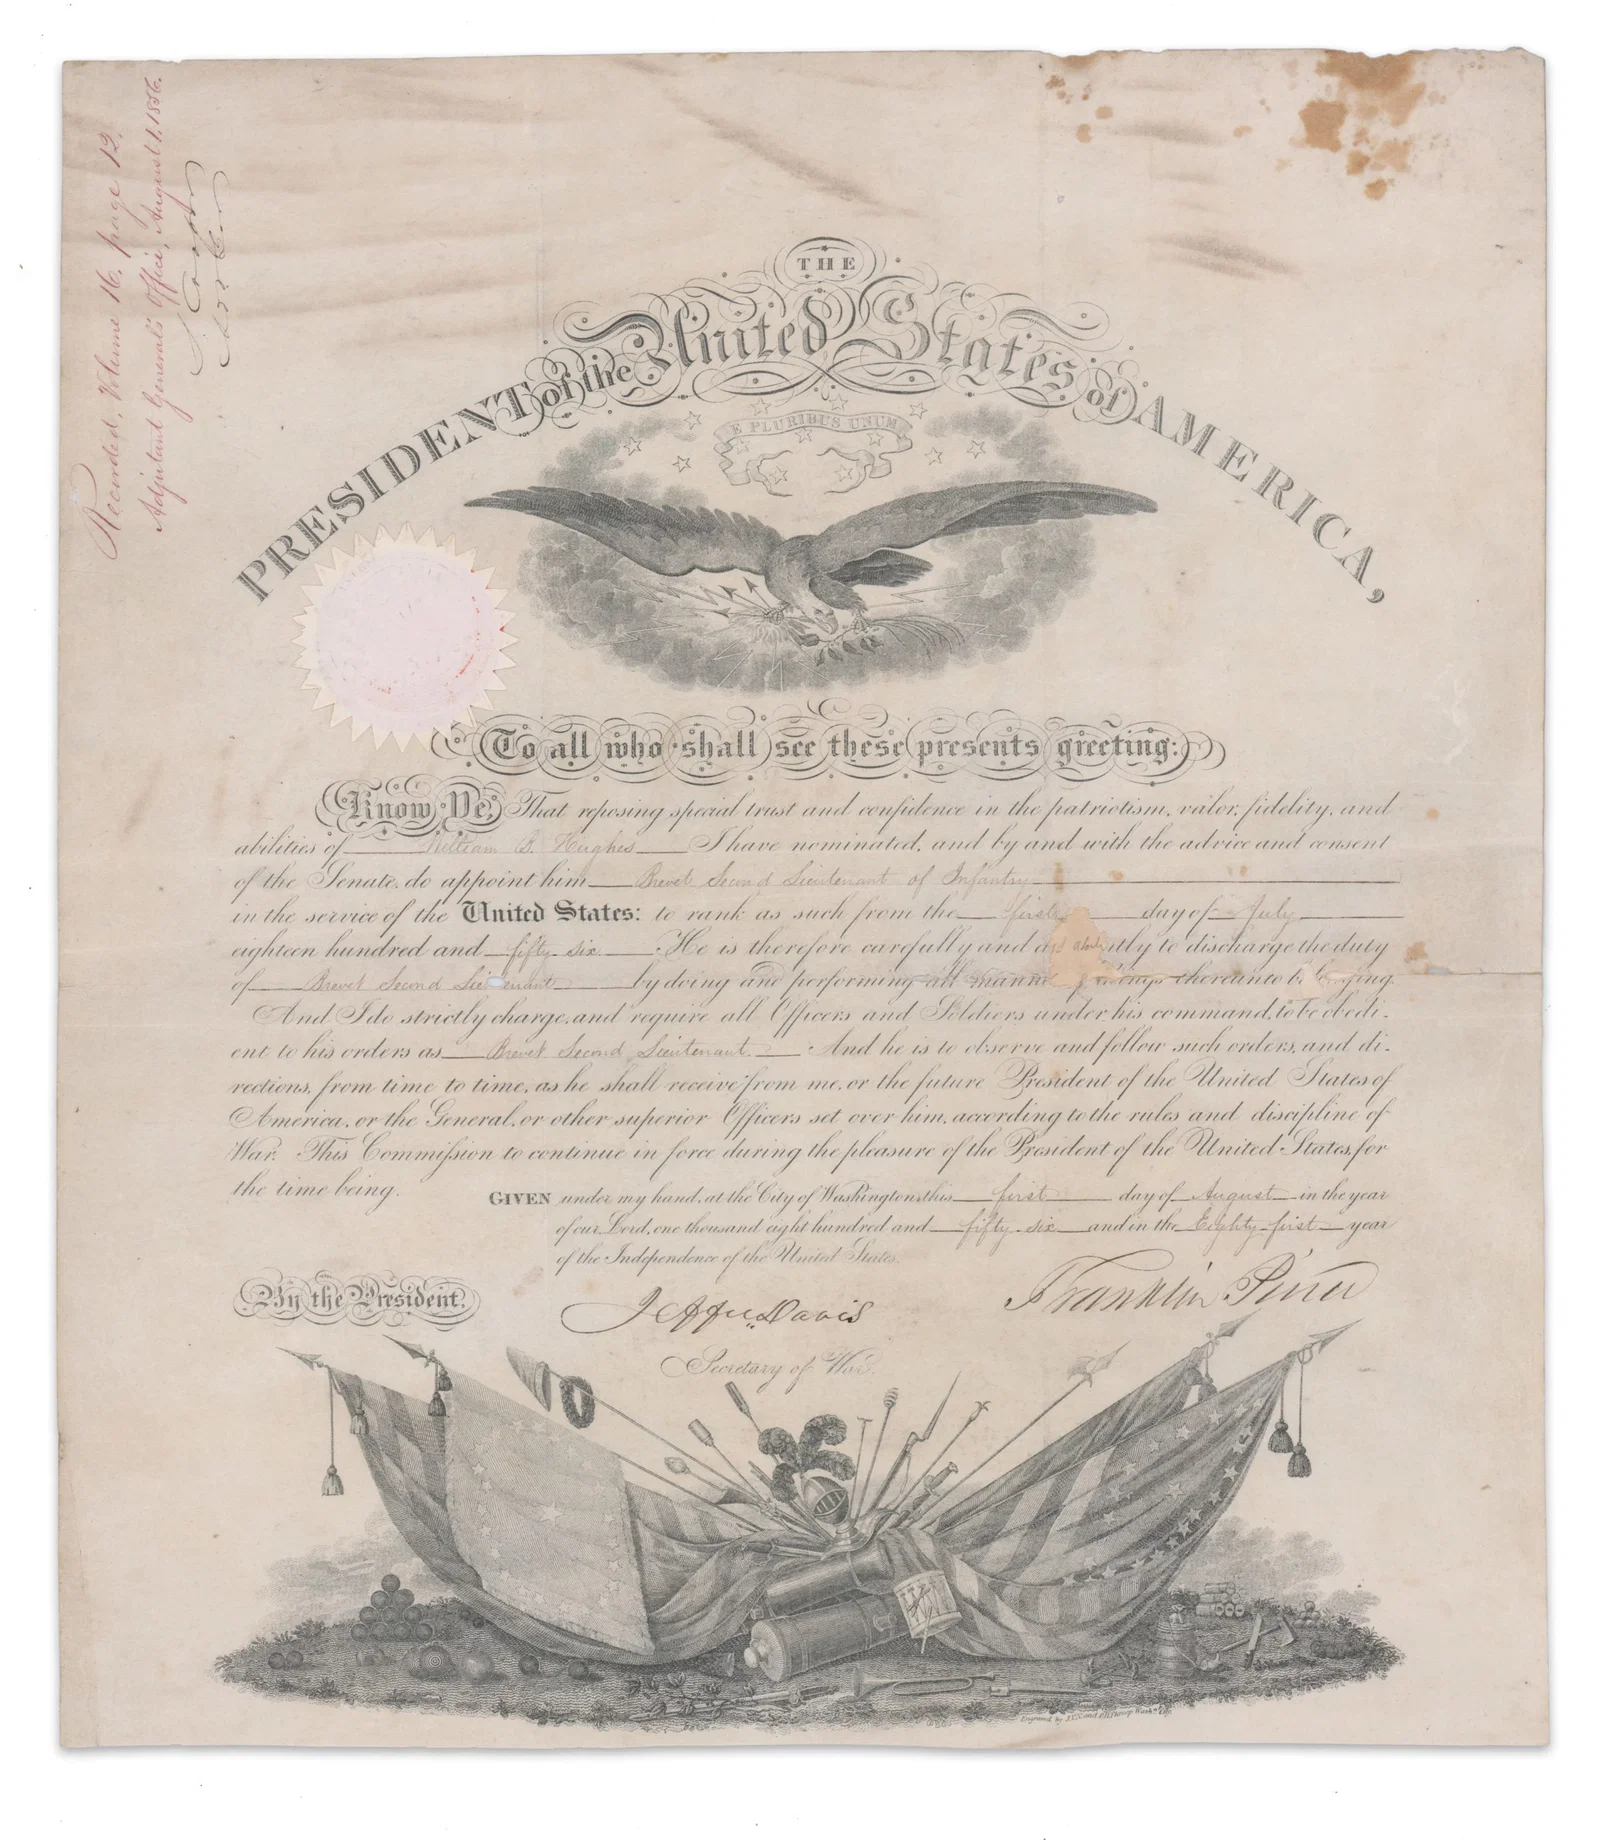 Recorded, Volume 16, page 12.
Adjutant General's Office, August 1, 1856.
THE
PRESIDENT of the United States of AMERICA,
E PLURIBUS UNUM
To all who shall see these presents greeting:
Know Ye, That reposing special trust and confidence in the patriotism, valor, fidelity, and
abilities of William B. Hughes I have nominated, and by and with the advice and consent
of the Senate, do appoint him Brevet Second Lieutenant of Infantry
in the service of the United States: to rank as such from the first day of July
eighteen hundred and fifty six. He is therefore carefully and to discharge the duty
of Brevet Second Lieutenant by doing and performing all thereunto
And I do strictly charge, and require all Officers and Soldiers under his command, to be obedi-
ent to his orders as Brevet Second Lieutenant. And he is to observe and follow such orders, and di-
rections, from time to time, as he shall receive from me, or the future President of the United States of
America, or the General, or other superior Officers set over him, according to the rules and discipline of
War. This Commission to continue in force during the pleasure of the President of the United States, for
the time being.
GIVEN under my hand, at the City of Washington, this first day of August in the year
of our Lord, one thousand eight hundred and fifty six and in the Eighty-first year
of the Independence of the United States.
By the President.
Franklin Pierce
Jeffn Davis
Secretary of War.